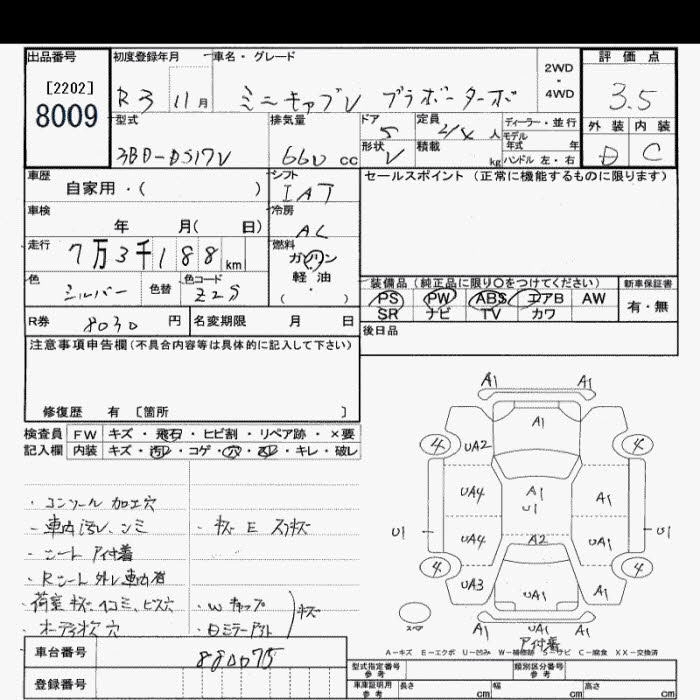 出品番号
[2202]
8009
初度登録年月 車名・グレード
R3 11月 ミニキャブV ブラボーターボ
2WD
・
4WD
評価点
3.5
外装 内装
D C
型式 排気量
3BD-DS17V 660 cc
ドア 定員 ディーラー・並行
5 2/4 人 モデル年式 年
形状 積載
V kg ハンドル 左・右
車歴 シフト
自家用・( ) IAT
車検 冷房
年 月( 日) AC
走行 燃料
7万3千188km ガソリン
軽・油
( ・ )
色 色替 色コード
シルバー Z2S
R券 8030 円 名変期限 月 日
セールスポイント (正常に機能するものに限ります)
装備品(純正品に限り〇をつけてください) 新車保証書
PS PW ABS エアB AW 有・無
SR ナビ TV カワ
後日品
注意事項申告欄(不具合内容等は具体的に記入して下さい)
修復歴 有 [箇所 ]
検査員 FW キズ・飛石・ヒビ割・リペア跡・×要
記入欄 内装 キズ・汚レ・コゲ・穴・スレ・キレ・破レ
・コンソール加工穴
・車内汚レ、シミ ・キズ E スリキズ
・シート アイ付着
・Rシート外し車内有
・荷室 キズ ヘコミ、ビス穴 ・Wキャップ
・オーディオ枠穴 ・Dミラーアウト キズ
A1 A1
A1
4 UA2 4
UA4 A1 A1
U1 U1 U1
UA4 A2 UA1
4 UA3 UA1 A1 4
A1 UA1 A1
スペア
アイ付着
A－キズ E－エクボ U－凹み W－補修跡 S－サビ C－腐食 XX－交換済
車台番号 880075
登録番号
型式指定番号 参考 類別区分番号 参考
車庫証明用 参考 長さ cm 幅 cm 高さ cm